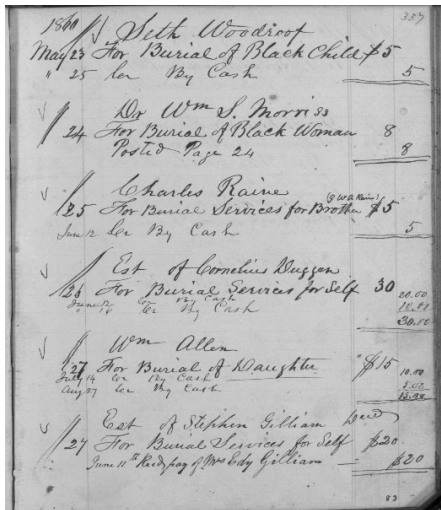 1860 Seth Woodroof 337
May 23 For Burial of Black Child $5
" 25 Cr By Cash 5
Dr Wm S. Morris 83
24 For Burial of Black Woman 8
Posted Page 24 8
Charles Raine
25 For Burial Services for Brother (G W A Raine) $5
June 12 Cr By Cash 5
Est of Cornelius Duggan
26 For Burial Services for Self 30
June 12 Cr By Cash 20.00
" 16 Cr By Cash 10.00
30.00
Wm Allen
27 For Burial of Daughter $15
July 14 Cr By Cash 10.00
Aug 27 Cr By Cash 5.00
15.00
Est of Stephen Gilliam Decd
27 For Burial Services for Self $20
June 11th Recd pay of Mrs Edy Gilliam — $20
83